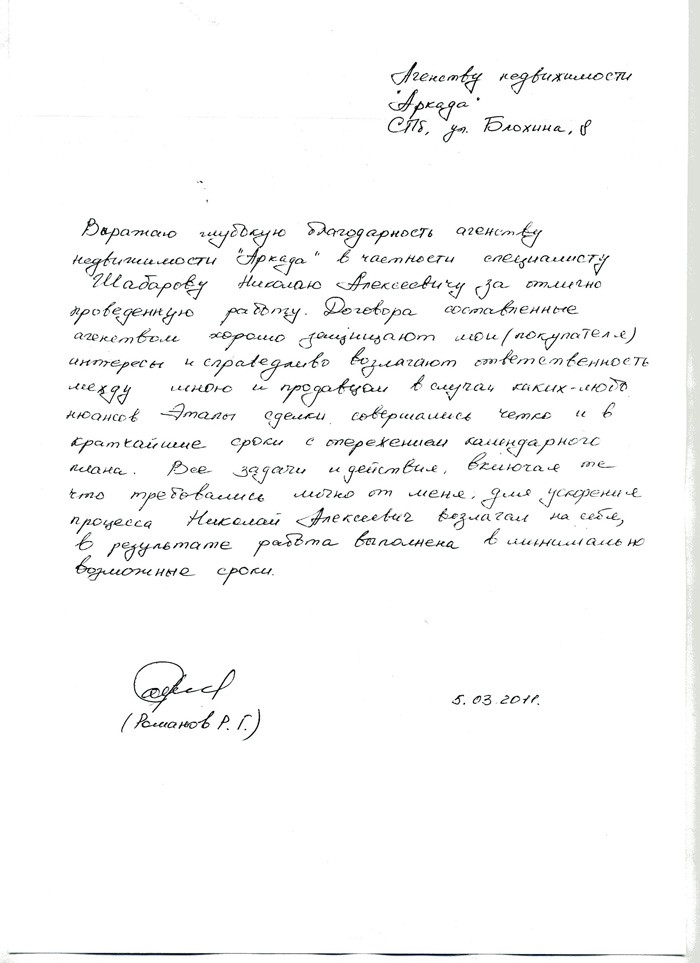 Агенству недвижимости
"Аркада"
СПб, ул. Блохина, 8
Выражаю глубокую благодарность агенству
недвижимости "Аркада" в частности специалисту
Шабарову Николаю Алексеевичу за отлично
проведенную работу. Договора составленные
агенством хорошо защищают мои (покупателя)
интересы и справедливо возлагают ответственность
между мною и продавцом в случаи каких-либо
нюансов Этапы сделки совершались четко и в
кратчайшие сроки с опережением календарного
плана. Все задачи и действия, включая те
что требовались лично от меня, для ускорения
процесса Николай Алексеевич возлагал на себя,
в результате работа выполнена в минимально
возможные сроки.
(Романов Р. Г.)
5.03.2011.